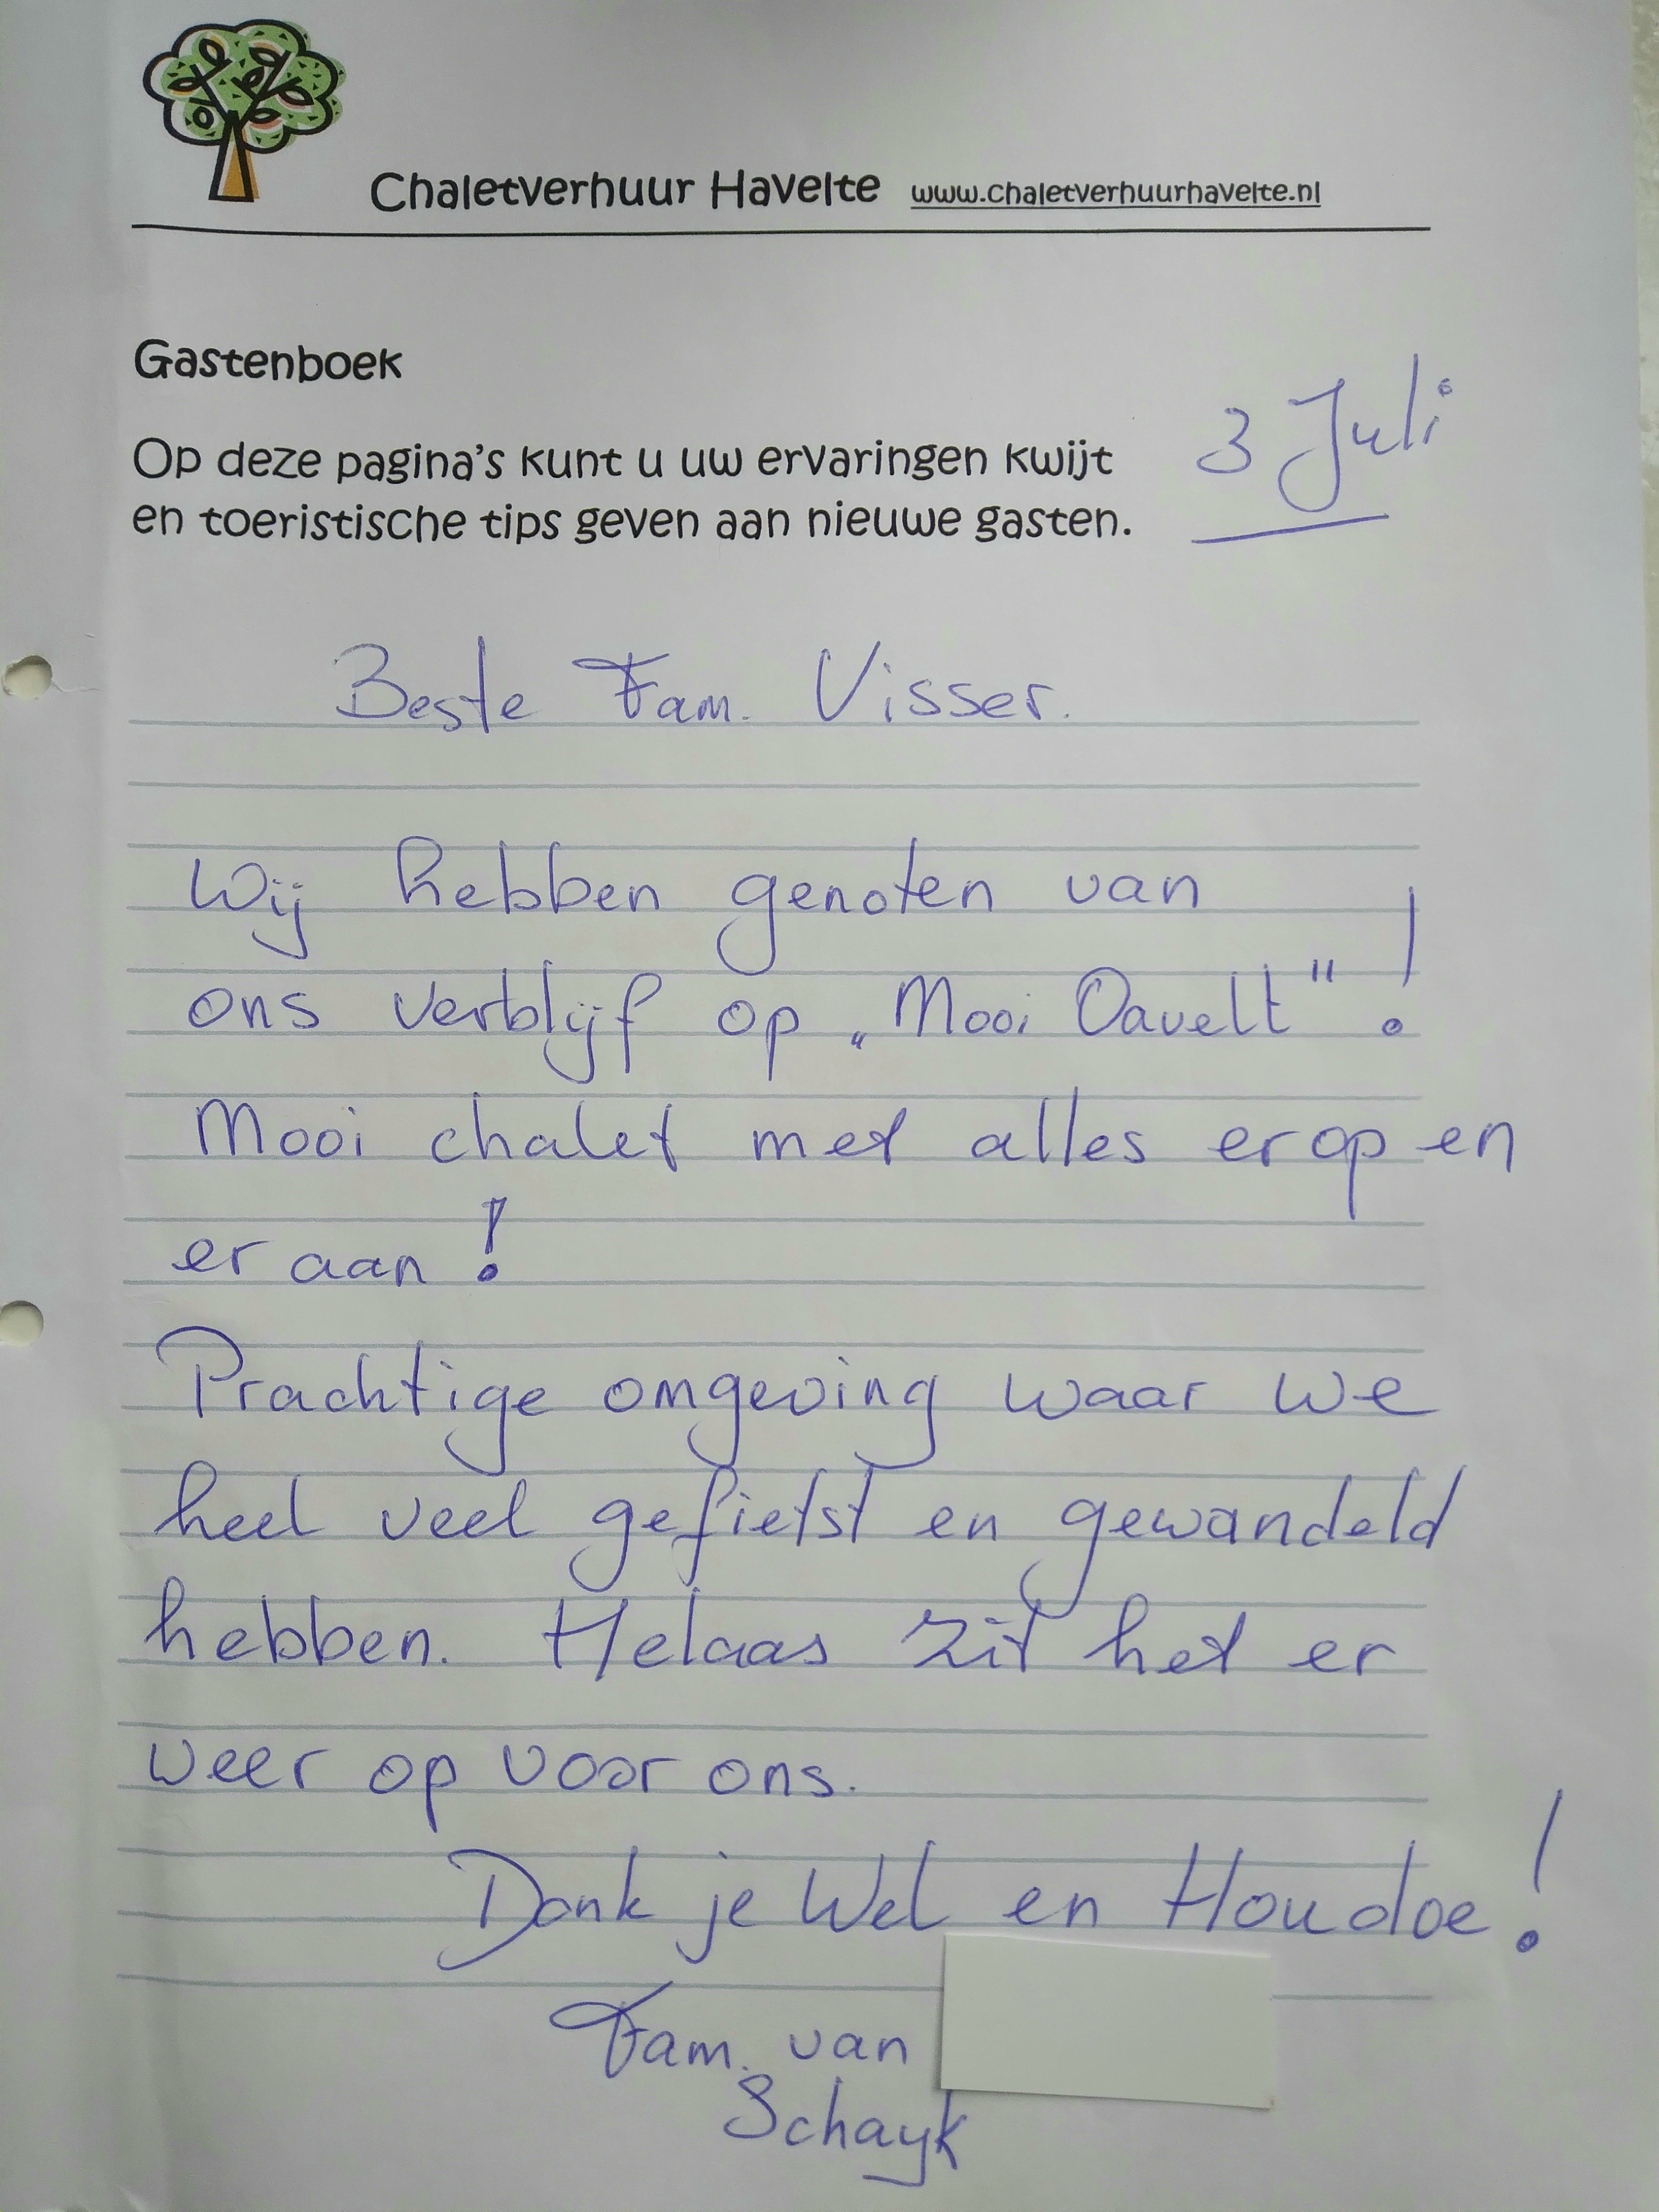 Chaletverhuur Havelte www.chaletverhuurhavelte.nl
Gastenboek
Op deze pagina's kunt u uw ervaringen kwijt
en toeristische tips geven aan nieuwe gasten.
3 Juli
Beste Fam. Visser.
Wij hebben genoten van
ons verblijf op „Mooi Oavelt"!
Mooi chalet met alles erop en
er aan!
Prachtige omgeving waar we
heel veel gefietst en gewandeld
hebben. Helaas zit het er
weer op voor ons.
Dank je Wel en Houdoe!
Fam. van
Schayk